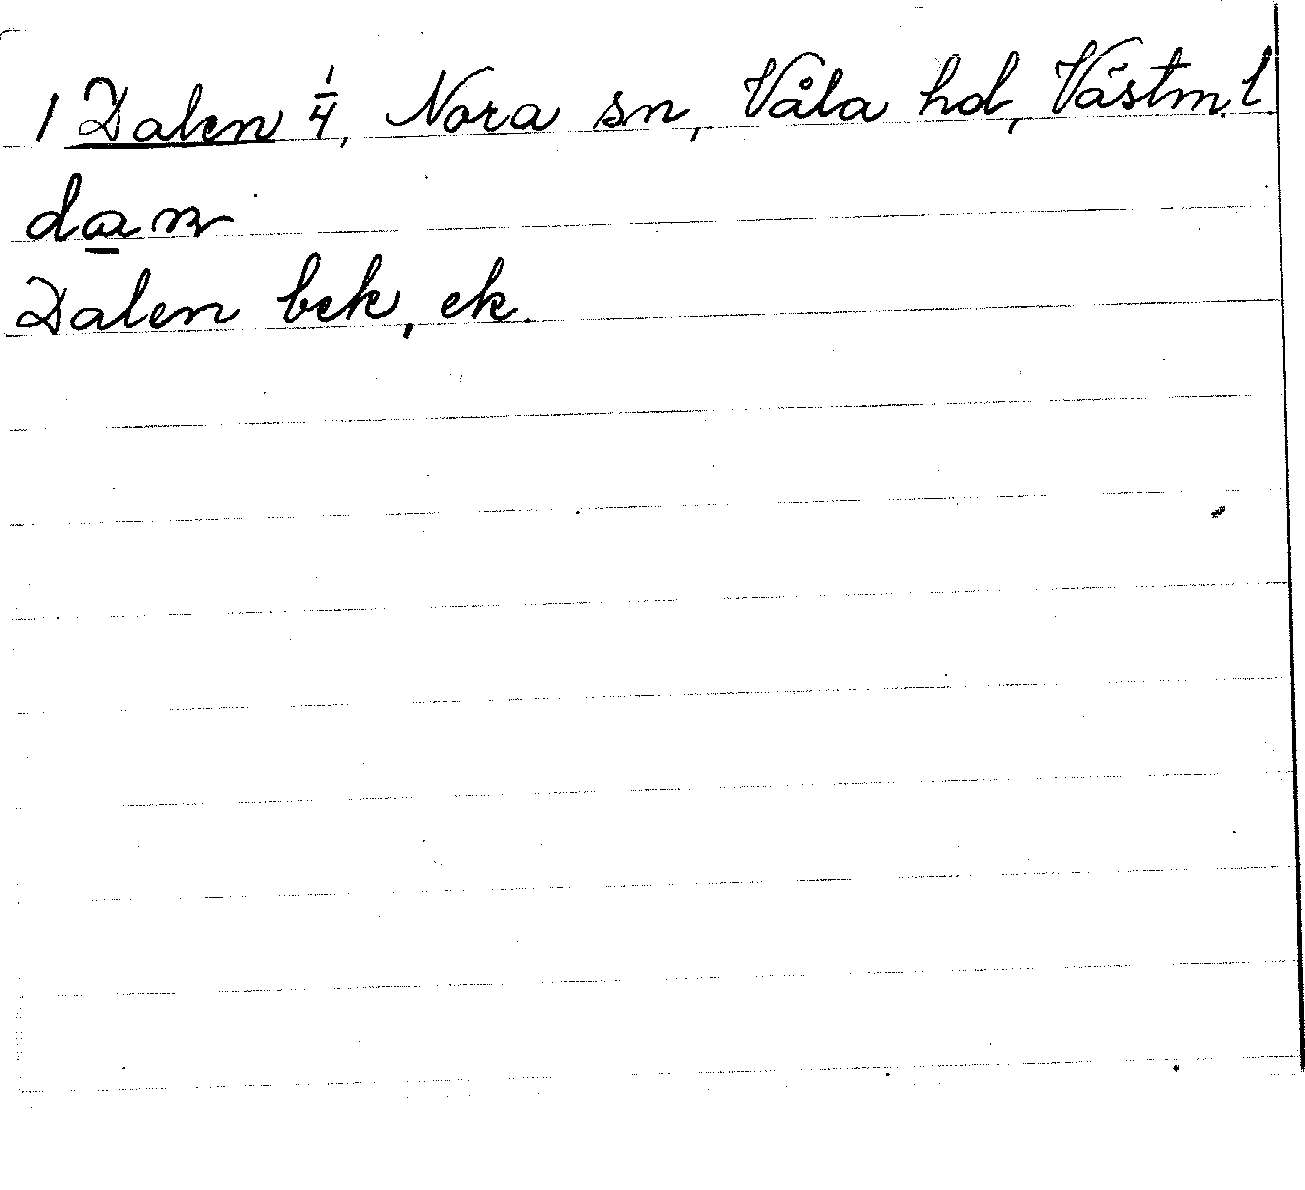 1 Dalen 1/4, Nora sn, Våla hd, Västm. l.
dan
Dalen bek, ek.